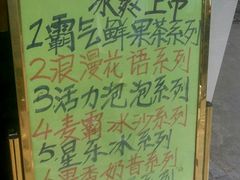 冰爽上市
1霸气鲜果茶系列
2浪漫花语系列
3活力泡泡系列
4麦霸冰沙系列
5星乐冰系列
香奶昔系列